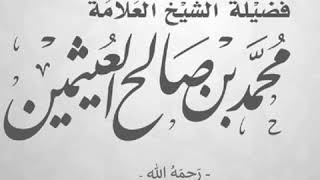 فضيلة الشيخ العلامة
محمد بن صالح العثيمين
- رَحِمَهُ الله -